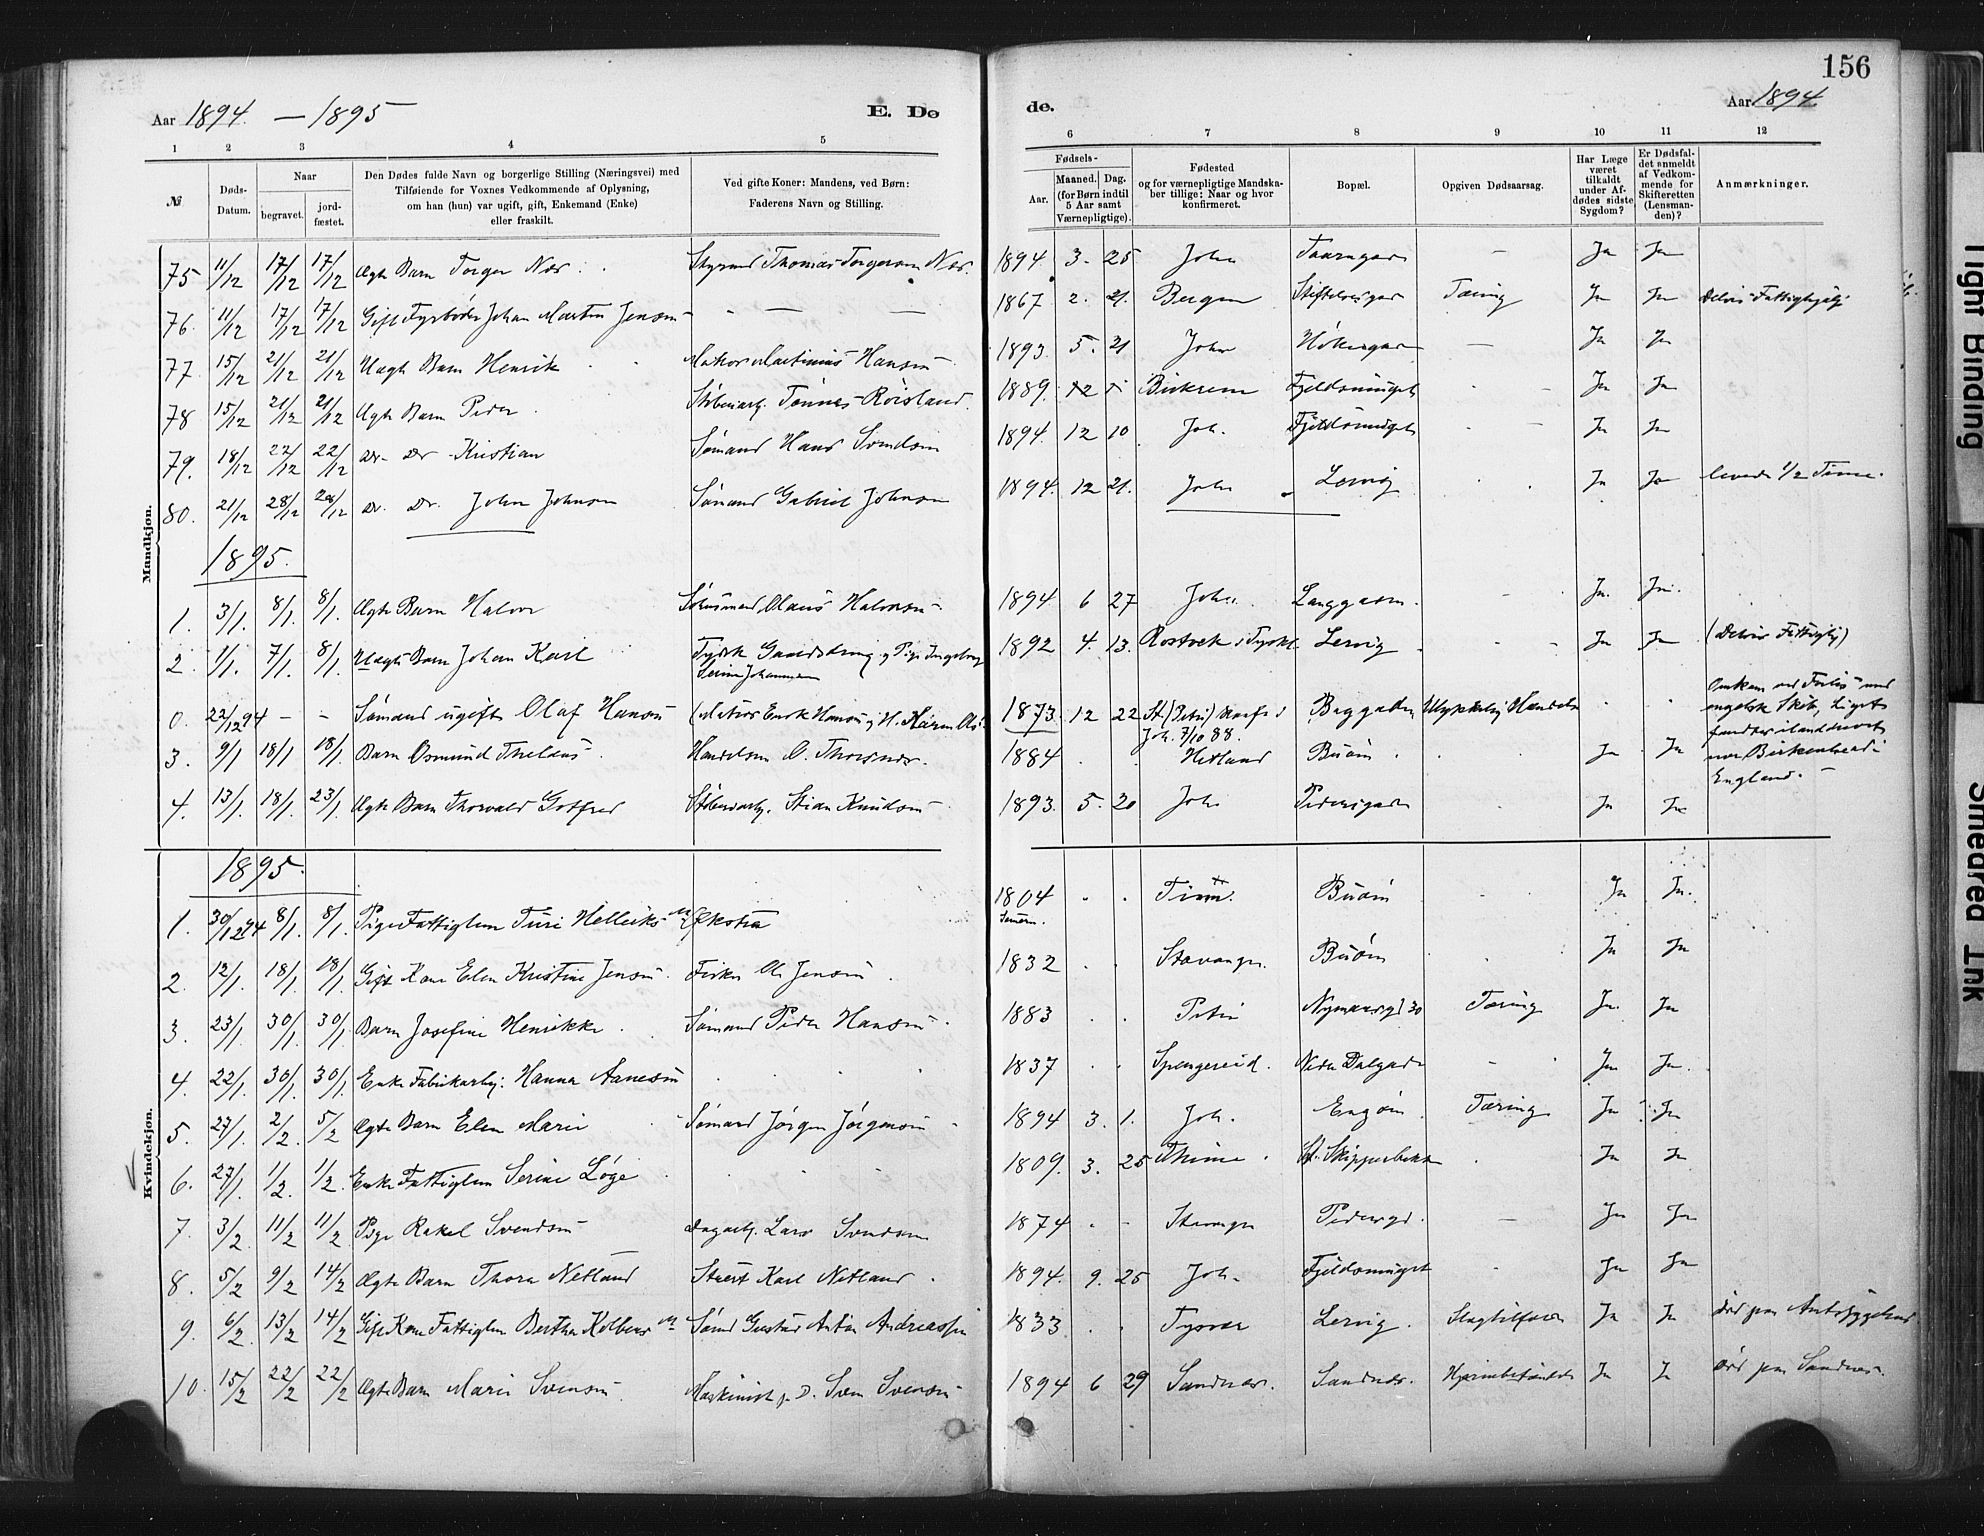 156
Aar 1894 — 1895
E. Dø
de.
Aar 1894
1 2 3 4 5 6 7 8 9 10 11 12
№
Døds-Datum.
Naar
begravet.
jord-fæstet.
Den Dødes fulde Navn og borgerlige Stilling (Næringsvei) med
Tilføiende for Voxnes Vedkommende af Oplysning,
om han (hun) var ugift, gift, Enkemand (Enke)
eller fraskilt.
Ved gifte Koner: Mandens, ved Børn:
Faderens Navn og Stilling.
Fødsels-
Aar.
Maaned. Dag.
(for Børn indtil
5 Aar samt
Værnepligtige).
Fødested
og for værnepligtige Mandska-
ber tillige: Naar og hvor
konfirmeret.
Bopæl.
Opgiven Dødsaarsag.
Har Læge
været
tilkaldt
under Af-
dødes sidste
Sygdom?
Er Dødsfal-
det anmeldt
af Vedkom-
mende for
Skifteretten
(Lensman-
den)?
Anmærkninger.
Mandkjøn.
75 11/12 17/12 17/12 Ægte Barn Torger Næs Thomas Torgersen Næs 1894 3. 25 Joh. Ja Ja
76. 11/12 17/12 17/12 Gift Fyrbøder Johan Martin Jensen — — 1867 2. 21. Bergen Tæring Ja Ja
77. 15/12 21/12 21/12 Uægte Barn Henrik Martinius Hansen 1893. 5. 21 Joh. — Ja Ja
78 15/12 21/12 21/12 Ægte Barn Peder Tønnes Roisland 1889. 12 Birkrem Fjeldsmuget Ja Ja
79. 18/12 22/12 22/12 Do Do Kristian Sømand Hans Svendsen 1894. 12 10 Joh. Fjeldsmuget Ja Ja
80. 21/12 28/12 28/12 Do Do John Johnsen Sømand Gabriel Johnsen 1894. 12 21. Joh. Lervig Ja Ja levede 1/2 Time.
1895.
1. 3/1. 8/1. 8/1. Ægte Barn Halvor Olaus Halvorsen 1894 6 27 Joh. Langgaden. Ja. Ja.
2. 1/1. 7/1. 8/1. Uægte Barn Johan Karl Tysk Pige Ingeborg
Serine Johannesen 1892 4. 13. Rostock i Tyskl. Lervig Ja Ja
0. 22/12 94 – – Sømand ugift Olaf Hansen 1873. 12 22 St. (Petri) Konf. i
Joh. 7/10 88. Ulykkelig Hændelse Omkom ved Forlis med
engelsk Skib, Liget
near Birkenhead i
England. —
3. 9/1 18/1 18/1. Barn Osmund Handelsm. O. 1884 Hetland Buøen Ja Ja
4. 13/1. 18/1. 23/1. Ægte Barn Thorvald Gotfred Stian Knudsen 1893. 5. 20 Joh. Pedersgaden Ja Ja
Kvindekjøn.
1895.
1. 30/12 94 8/1. 8/1. Pige Fattiglem Turi Helleiks 1804 Time. Buøen Ja Ja.
2. 12/1. 18/1. 18/1. Gift Kone Elen Kristine Jensen Fisker Ol. Jensen 1832 Stavanger. Buøen Ja Ja
3. 23/1. 30/1. 30/1. Barn Josefine Henrikke Sømand Peder Hansen 1883 Petri 30 Tæring Ja. Ja
4. 22/1. 30/1. 30/1. Enke Fabrikarb. Hanna Aanesen 1837 Spangereid. Nedre Dalgade Ja Ja.
5. 27/1. 2/2. 5/2 Ægte Barn Elen Marie Sømand Jørgen Jørgensen 1894 3. 1. Joh. Engøen. Tæring Ja Ja
6. 27/1. 1/2. 1/2. Enke Fattiglem Serine Løge 1809. 3. 25 Thime. Ja Ja
7. 3/2 11/2 11/2 Pige Rakel Svendsen Dagarb. Lars Svendsen 1874 Pedersgd. — Ja Ja
8. 5/2 9/2 14/2 Ægte Barn Thora Netland Karl Netland 1894. 9. 25 Joh. Fjeldsmuget Ja Ja
9. 6/2. 13/2 14/2 Gift Kone Fattiglem Bertha Sømd Gustav Anton Andreassen 1833 Tysvær Lervig. Ja Ja død paa
10. 15/2 22/2 22/2 Ægte Barn Marie Svensen Maskinist Sven Svensen 1894 6 29 Sandnæs. Sandnæs. Ja Ja død paa Sandnæs
Tight Binding
Smeared Ink